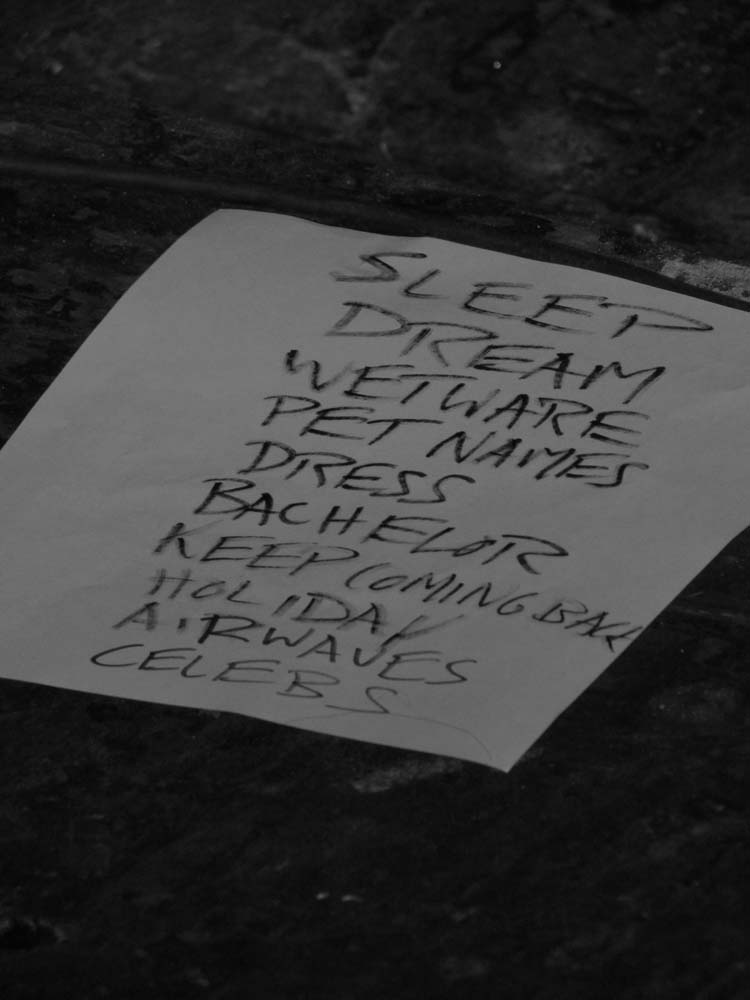 SLEEP
DREAM
WETWARE
PET NAMES
DRESS
BACHELOR
KEEP COMING BACK
HOLIDAY
AIRWAVES
CELEBS